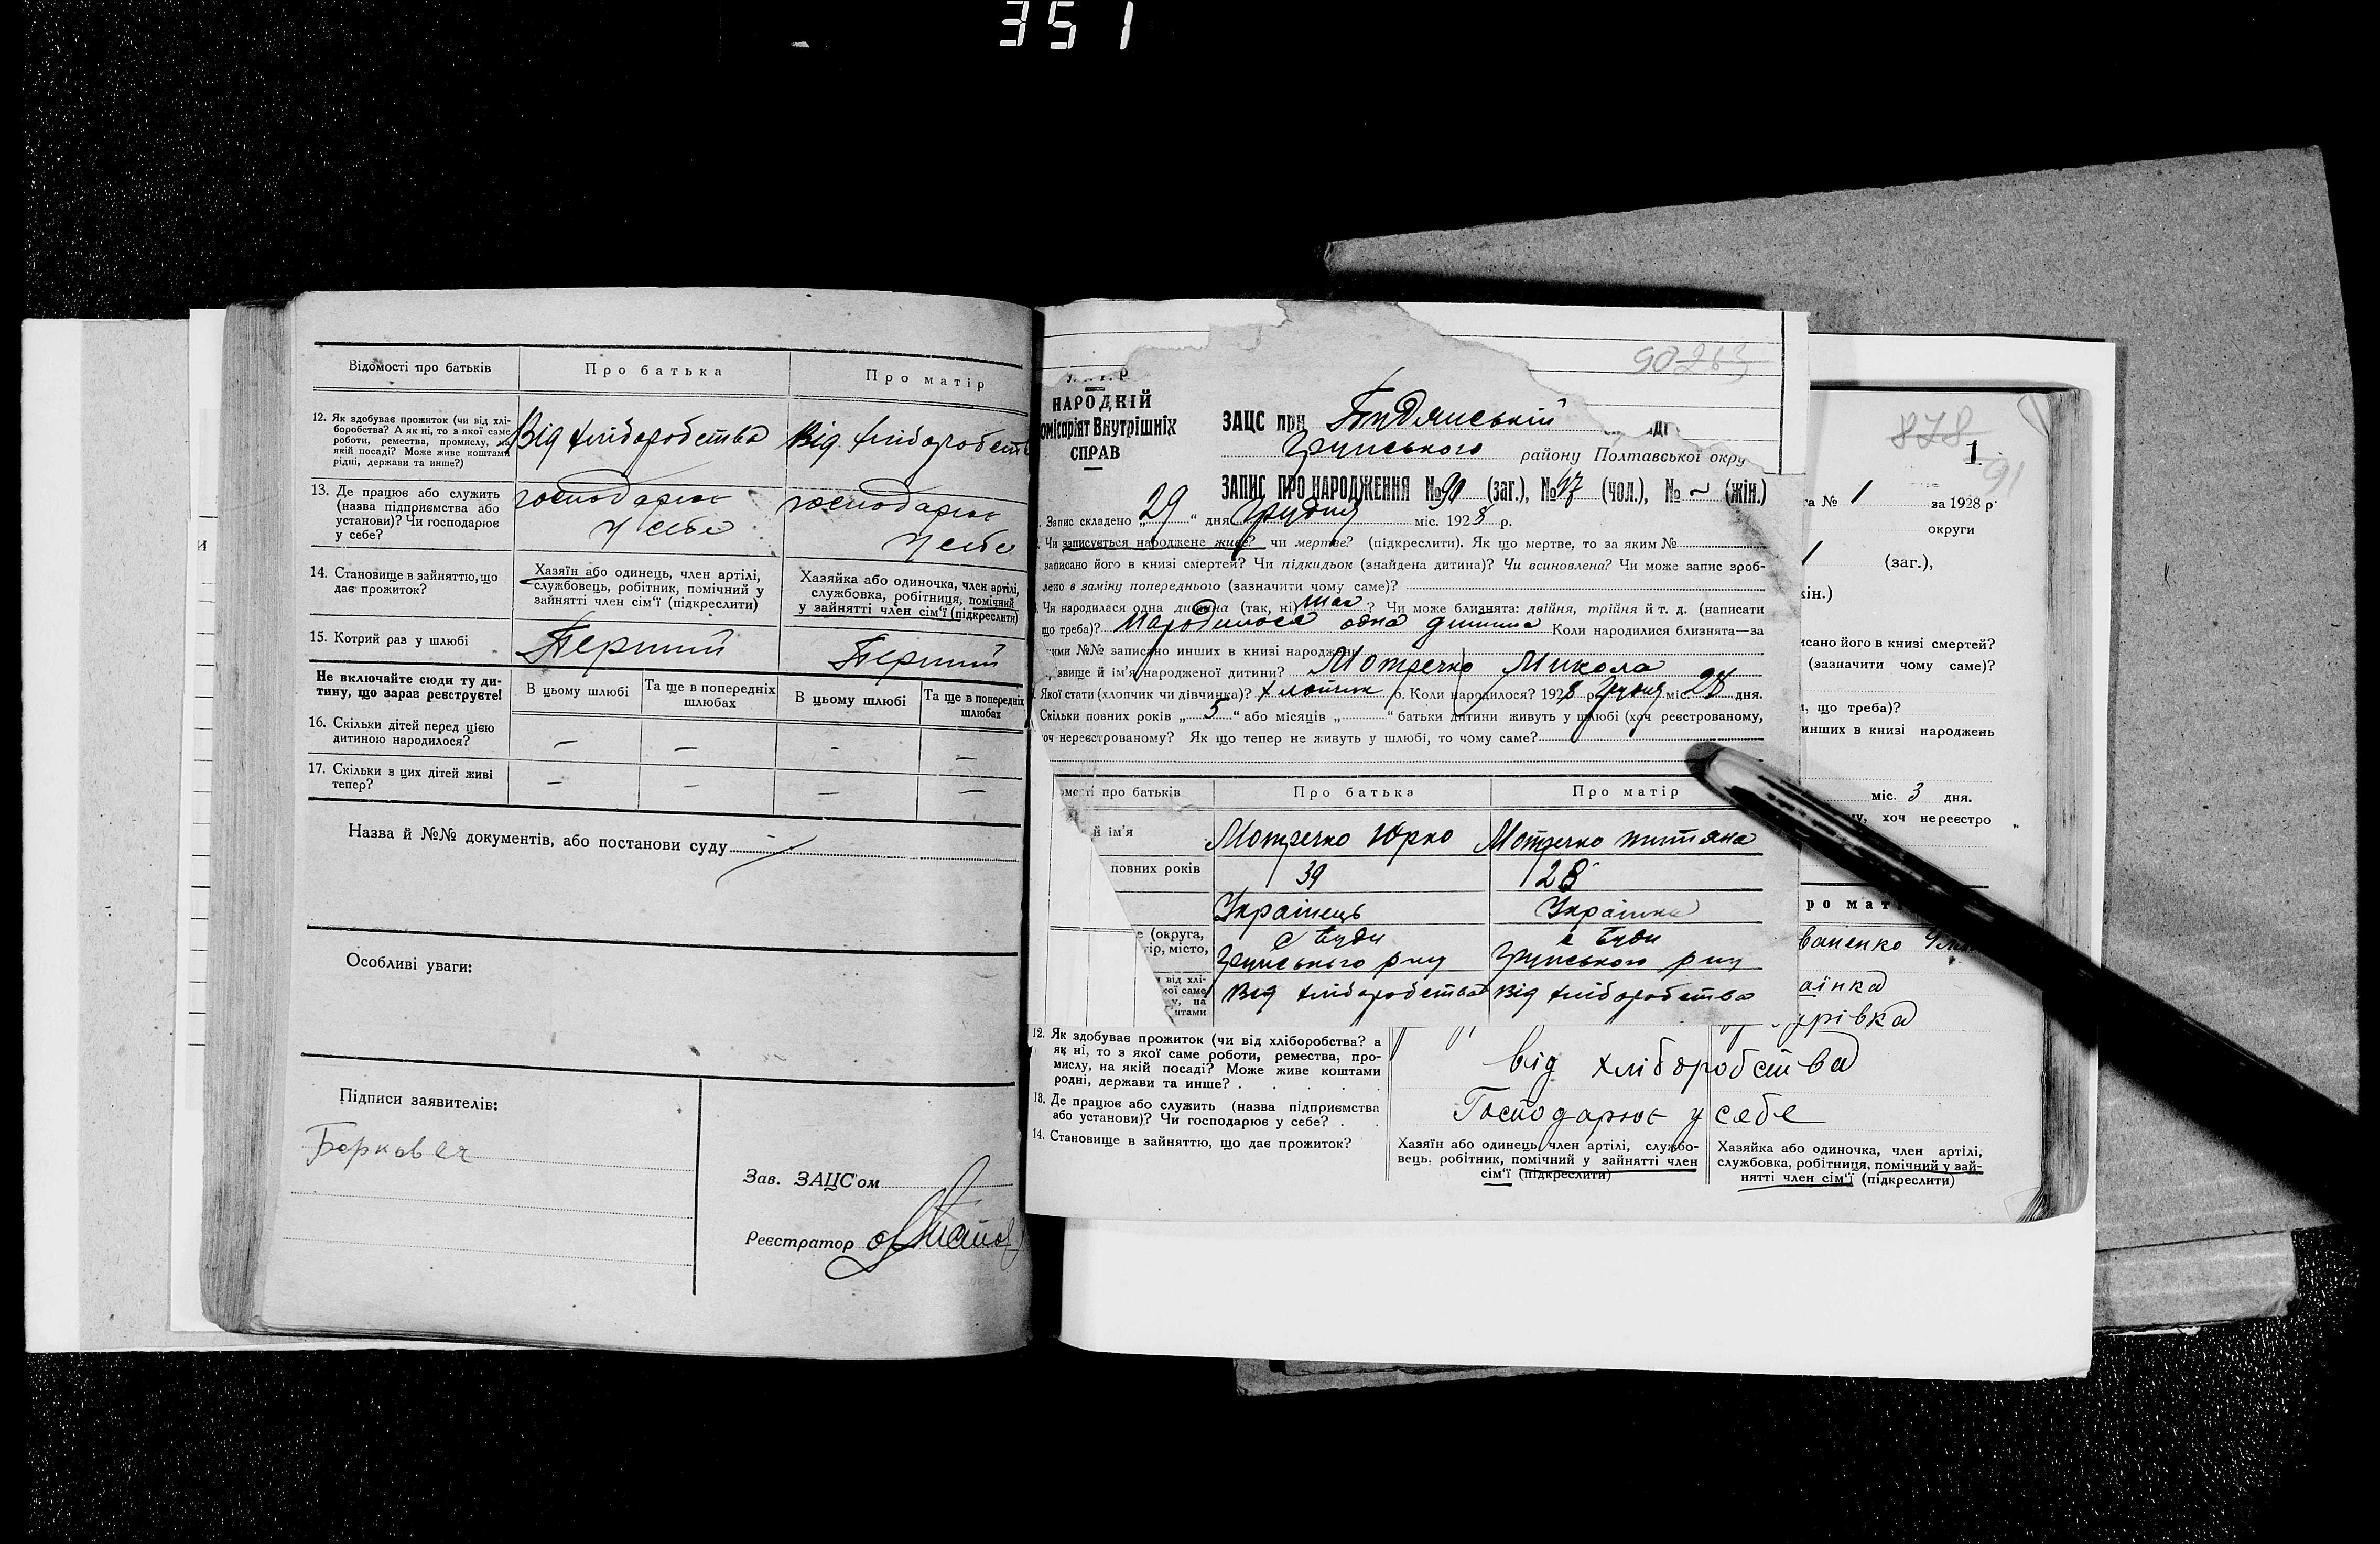 351
Відомості про батьків
Про батька
Про матір
12. Як здобуває прожиток (чи від хлі-
боробства? А як ні, то з якої саме
роботи, ремества, промислу, на
якій посаді? Може живе коштами
рідні, держави та инше?)
Від хліборобства
Від хліборобств
13. Де працює або служить
(назва підприємства або
установи)? Чи господарює
у себе?
господарює
у себе
господарює
у себе
14. Становище в зайняттю, що
дає прожиток?
Хазяїн або одинець, член артілі,
службовець, робітник, помічний у
зайнятті член сім'ї (підкреслити)
Хазяйка або одиночка, член артілі,
службовка, робітниця, помічний
у зайнятті член сім'ї (підкреслити)
15. Котрий раз у шлюбі
Перший
Перший
Не включайте сюди ту ди-
тину, що зараз реєструєте!
В цьому шлюбі
Та ще в попередніх
шлюбах
В цьому шлюбі
Та ще в попередніх
шлюбах
16. Скільки дітей перед цією
дитиною народилося?
— — — —
17. Скільки з цих дітей живі
тепер?
— — — —
Назва й №№ документів, або постанови суду
Особливі уваги:
Підписи заявителів:
Зав. ЗАЦС'ом
Реєстратор
90 263
НАРОДНІЙ
омісаріят Внутрішніх
СПРАВ
ЗАЦС при
Грунського району Полтавської окру
ЗАПИС ПРО НАРОДЖЕННЯ №90 (заг.), №47 (чол.), № ~ (жін.)
Запис складено „29" дня Грудня міс. 1928 р.
Чи записується народжене живе? чи мертве? (підкреслити). Як що мертве, то за яким №
записано його в книзі смертей? Чи підкидьок (знайдена дитина)? Чи всиновлена? Чи може запис зроб-
лено в заміну попереднього (зазначити чому саме)?
Чи народилася одна дитина (так, ні) так? Чи може близнята: двійня, трійня й т. д. (написати
що треба)? Народилося одна дитина Коли народилися близнята—за
якими №№ записано инших в книзі народжень
звище й ім'я народженої дитини? Мотречко Микола
Якої стати (хлопчик чи дівчинка)? хлопчик 6. Коли народилося? 1928 р. Грудня міс. 28 дня.
Скільки повних років „5" або місяців „ " батьки дитини живуть у шлюбі (хоч реєстрованому,
оч нереєстрованому? Як що тепер не живуть у шлюбі, то чому саме?
омості про батьків
Про батька
Про матір
й ім'я
Мотречко Юрко
Мотречко титяна
повних років
39
28
Українець
Українка
е (округа,
тір, місто,
с Буди
Грунського р ну
с Буди
Грунського р ну
від хлі-
кої саме
у, на
штами
Від хліборобства
Від хліборобства
12. Як здобуває прожиток (чи від хліборобства? а
як ні, то з якої саме роботи, ремества, про-
мислу, на якій посаді? Може живе коштами
родні, держави та инше?
від хліборобства
13. Де працює або служить (назва підприємства
або установи)? Чи господарює у себе?
Господарює у себе
14. Становище в зайняттю, що дає прожиток?
Хазяїн або одинець, член артілі, службо-
вець, робітник, помічний у зайнятті член
сім'ї (підкреслити)
Хазяйка або одиночка, член артілі,
службовка, робітниця, помічний у зай-
нятті член сім'ї (підкреслити)
878
1
91
та № 1 за 1928 р.
округи
1 (заг.),
жін.)
исано його в книзі смертей?
(зазначити чому саме)?
и, що треба)?
инших в книзі народжень
міс. 3 дня.
му, хоч нереєстро
ро мат
ваненко
аїнка